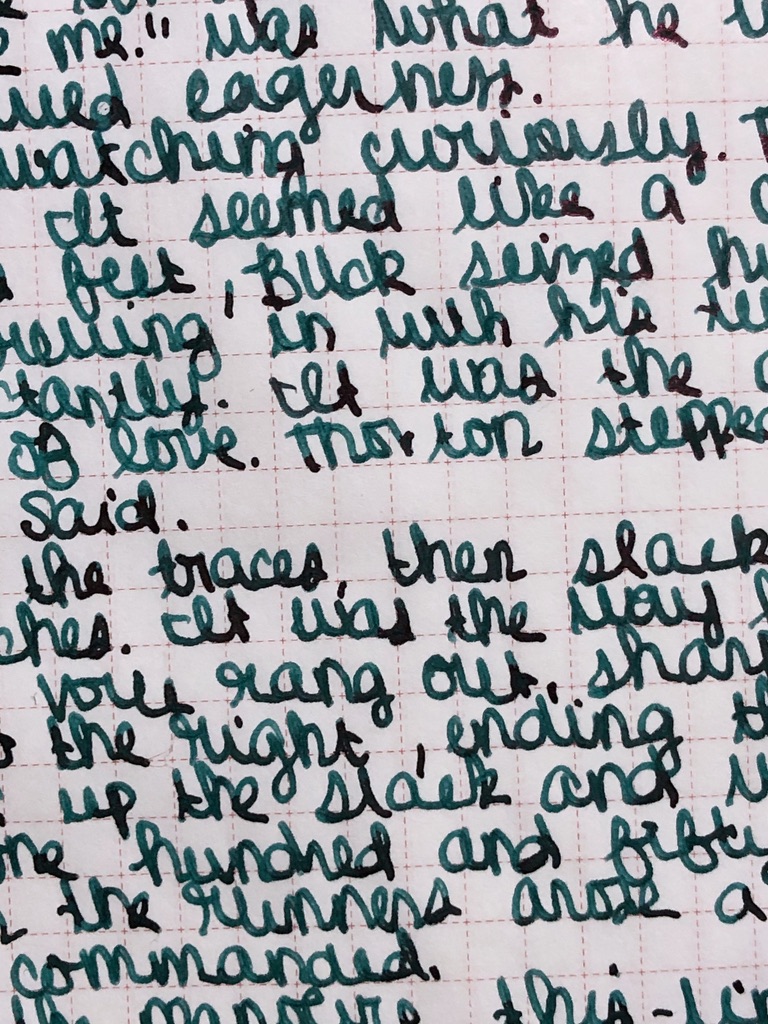 me." was what he
eagerness.
watching curiously.
It seemed like a
feet, Buck seized
in with his
It was the
of love. Thorton stepped
said.
the traces, then slack
ches. It was the way
voice rang out, sharp
the right, ending
up the slack and
hundred and
the runners arose a
commanded.
this time